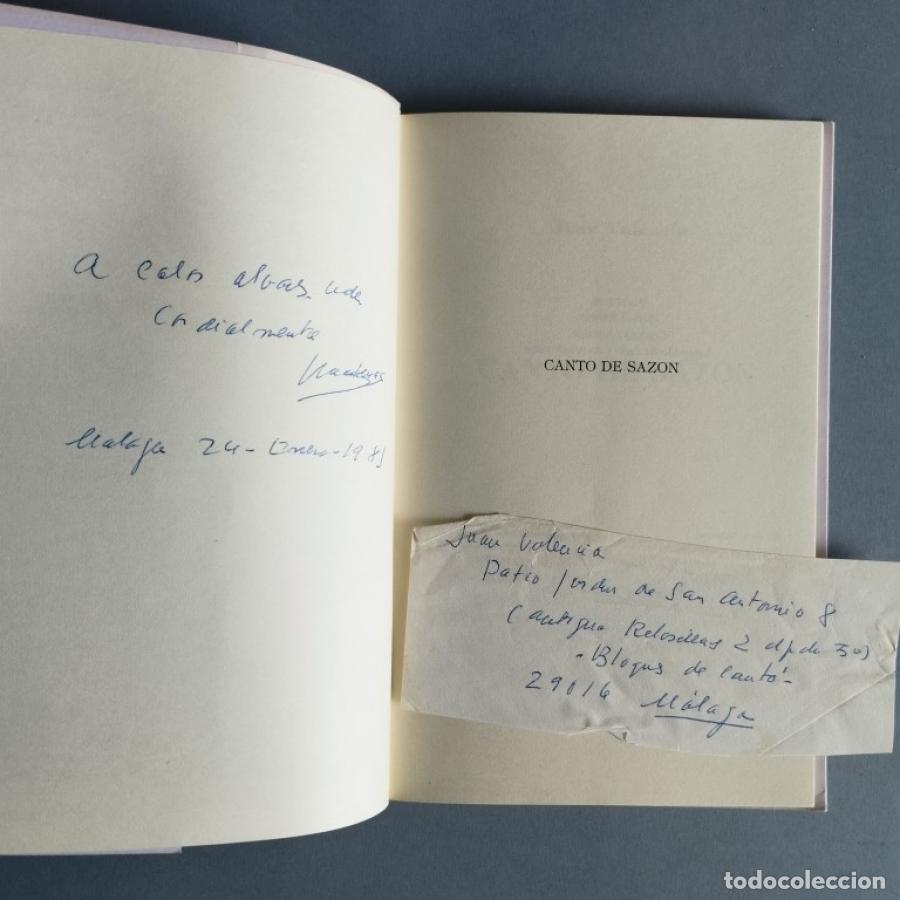 A Calos alvas-uda
Cordialmente
Malaga 24-Enero-1985
CANTO DE SAZON
Juan Valencia
Patio Jordin de San Antonio 8
(Antiguo Relosillas 2 dpdo 30)
-Bloques de Cantó-
29016 Málaga
todocoleccion